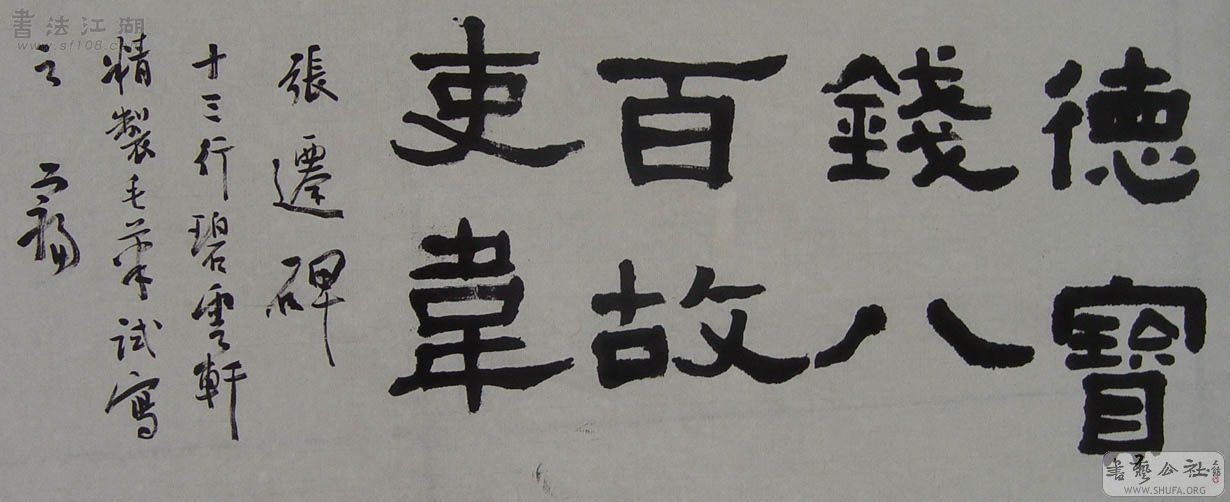 德寶
錢八
百故
吏韋
張遷碑
十三行碧雲軒
精製毛筆試寫
之
書法江湖
www.sf108.com
書藝公社
WWW.SHUFA.ORG